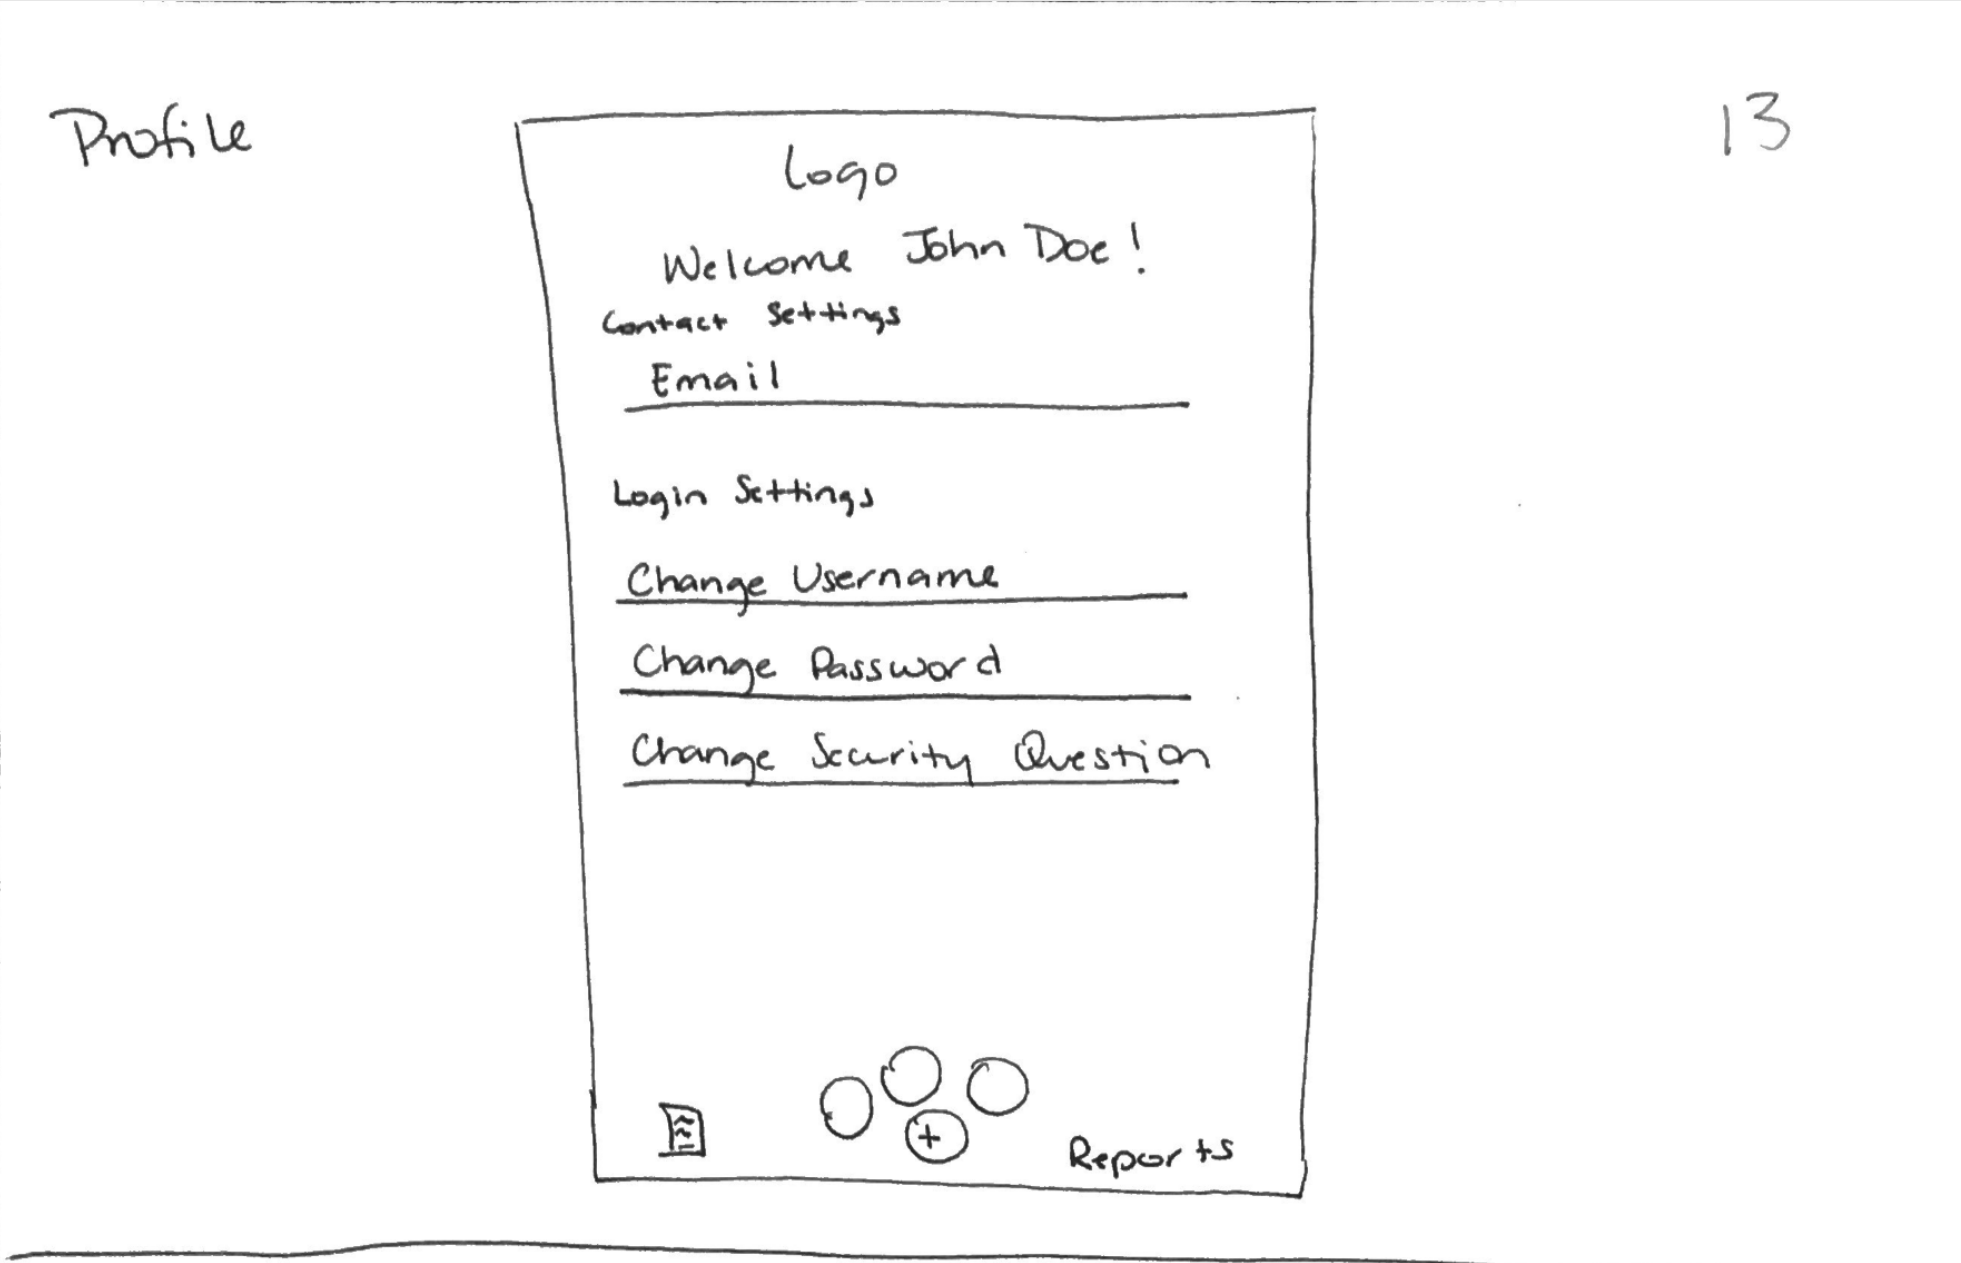 Profile
13
Logo
Welcome John Doe!
Contact Settings
Email
Login Settings
Change Username
Change Password
Change Security Question
+
Reports